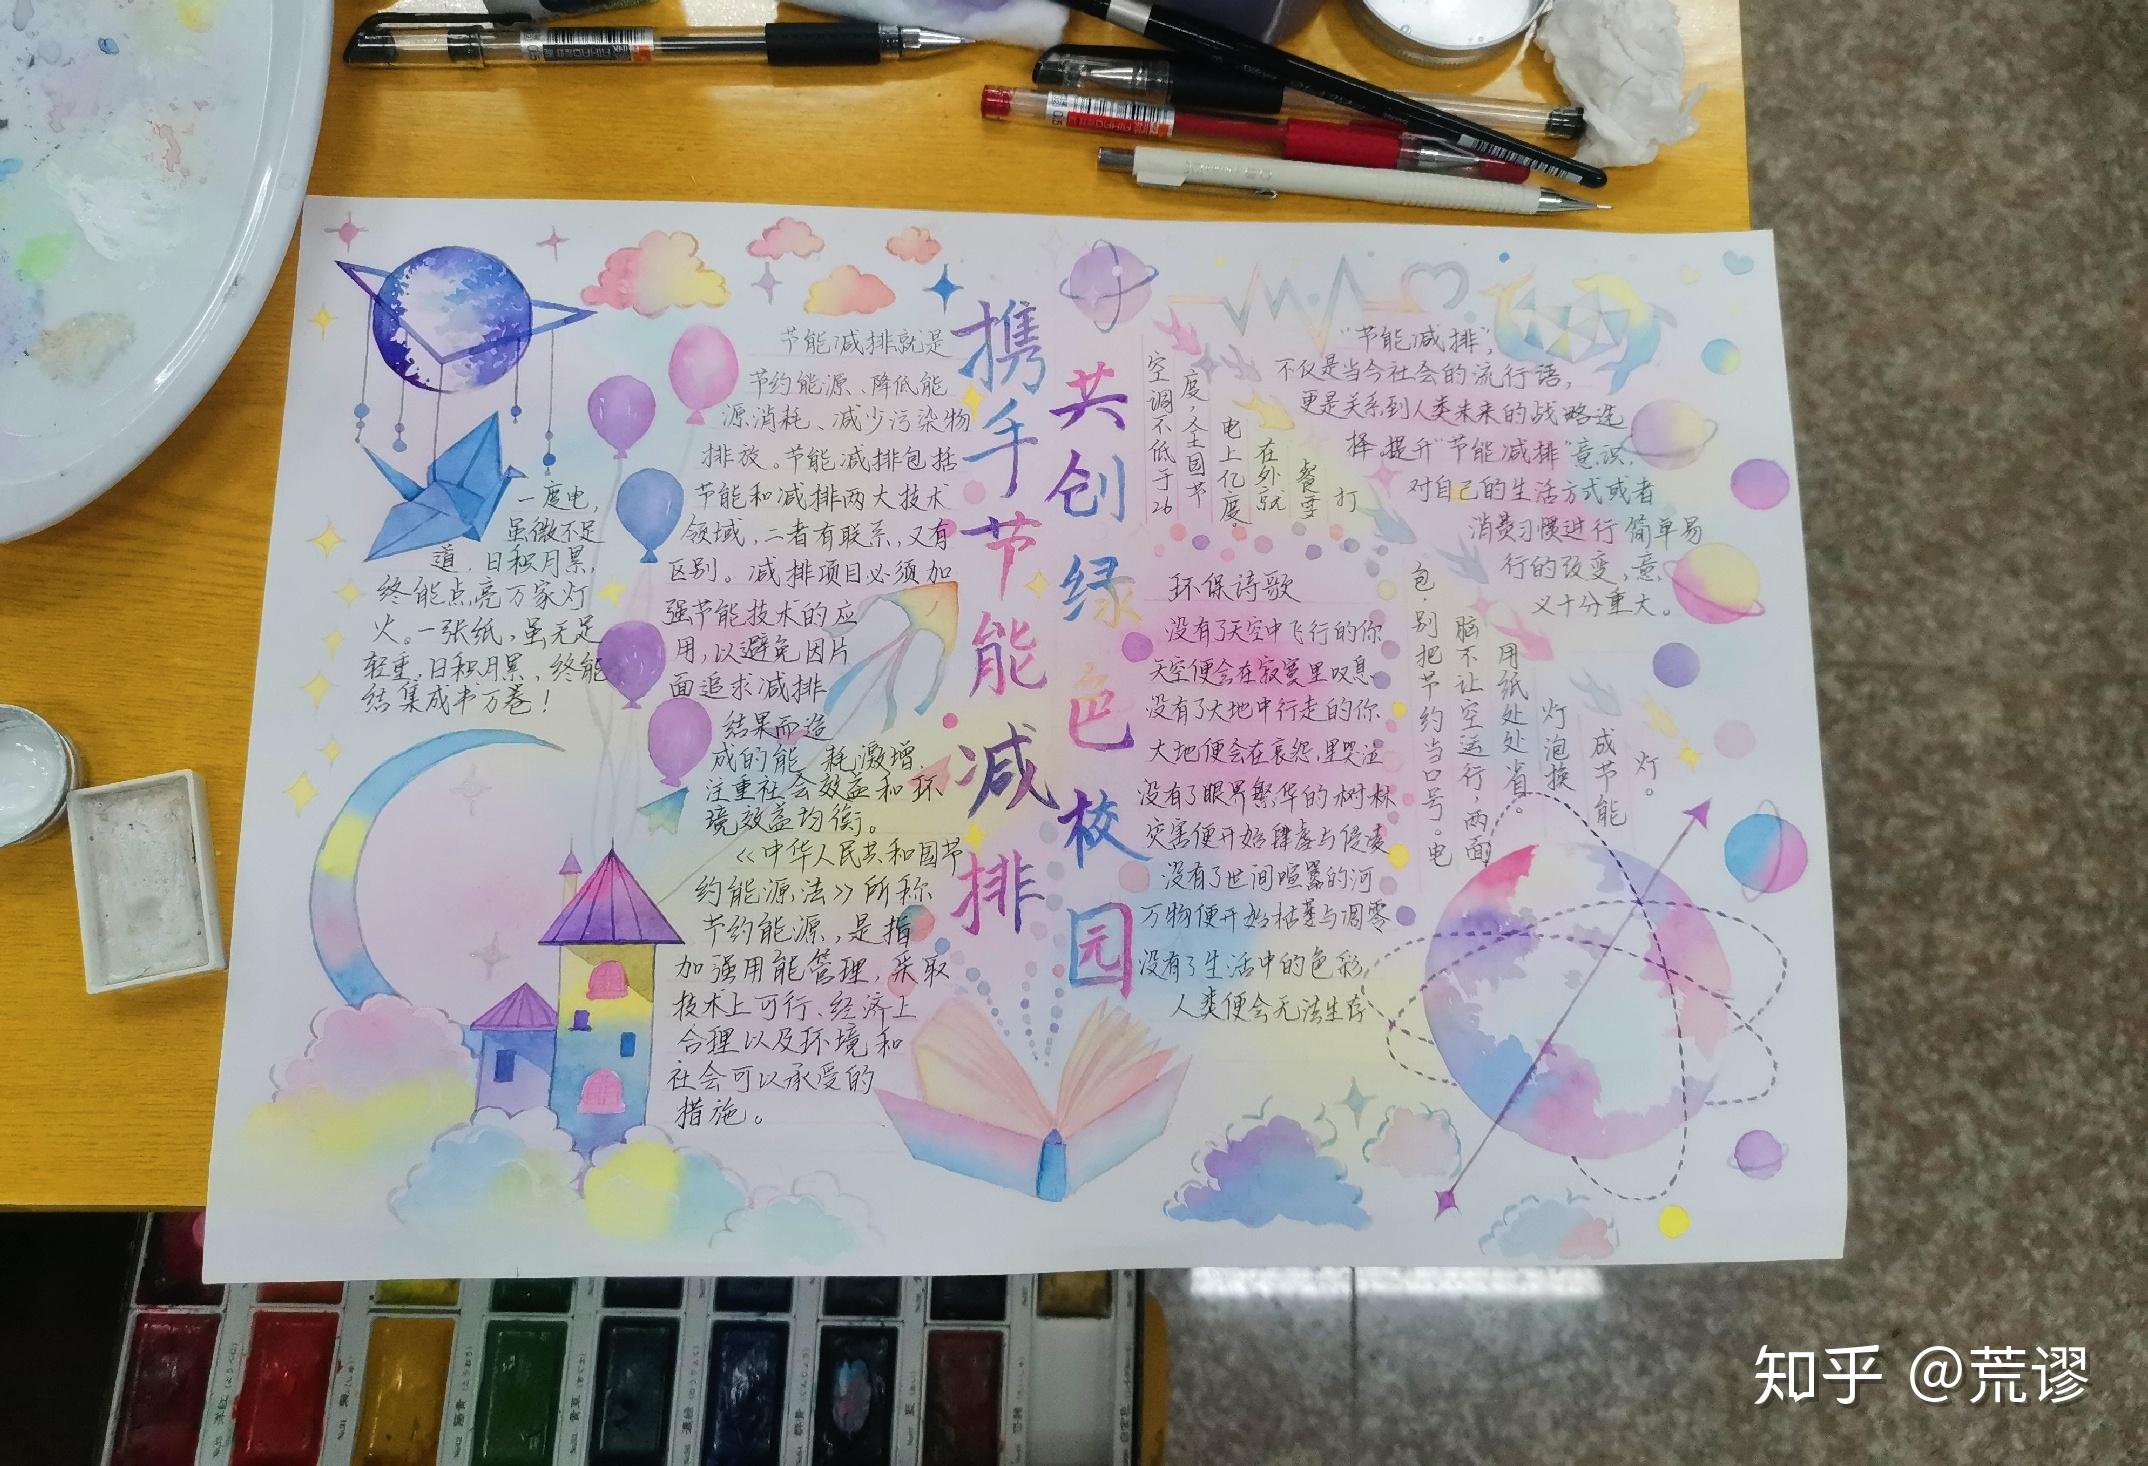 携手节能减排
共创绿色校园
一度电,
虽微不足
道,日积月累,
终能点亮万家灯
火。一张纸,虽无足
轻重,日积月累,终能
结集成书万卷!
节能减排就是
节约能源、降低能
源消耗、减少污染物
排放。节能减排包括
节能和减排两大技术
领域,二者有联系,又有
区别。减排项目必须加
强节能技术的应
用,以避免因片
面追求减排
结果而造
成的能耗激增,
注重社会效益和环
境效益均衡。
《中华人民共和国节
约能源法》所称
节约能源,是指
加强用能管理,采取
技术上可行、经济上
合理以及环境和
社会可以承受的
措施。
空调不低于26
度,全国节
电上亿度。
在外就
餐要
打
包,
别把节约当口号。电
脑不让空运行,两面
用纸处处省。
灯泡换
成节能
灯。
“节能减排”,
不仅是当今社会的流行语,
更是关系到人类未来的战略选
择.提升“节能减排”意识,
对自己的生活方式或者
消费习惯进行简单易
行的改变,意
义十分重大。
环保诗歌
没有了天空中飞行的你
天空便会在寂寞里叹息
没有了大地中行走的你
大地便会在哀怨里哭泣
没有了眼界繁华的树林
灾害便开始肆虐与侵凌
没有了世间喧嚣的河
万物便开始枯萎与凋零
没有了生活中的色彩
人类便会无法生存
知乎 @荒谬